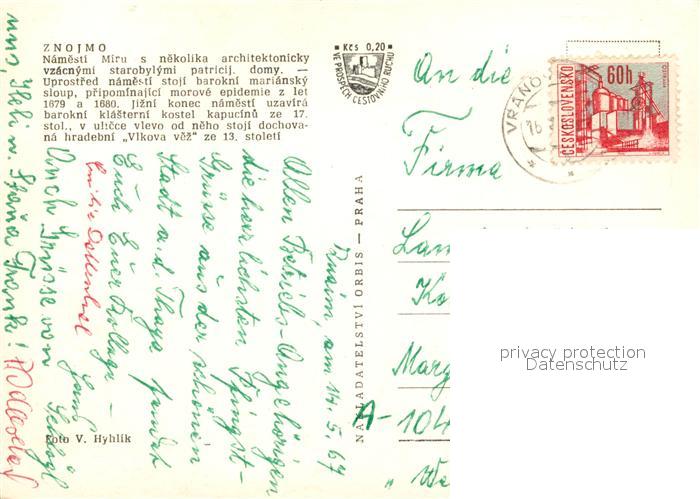 ZNOJMO
Náměstí Míru s několika architektonicky
vzácnými starobylými patricij. domy. —
Uprostřed náměstí stojí barokní mariánský
sloup, připomínající morové epidemie z let
1679 a 1680. Jižní konec náměstí uzavírá
barokní klášterní kostel kapucínů ze 17.
stol., v uličce vlevo od něho stojí dochova-
ná hradební „Vlkova věž" ze 13. století
Kčs 0,20
VE PROSPĚCH CESTOVNÍHO RUCHU
60h
ČESKOSLOVENSKO
VRANO
16
An die
Firma
Lan
Ko
Marg
A-104
„We
privacy protection
Datenschutz
NAKLADATELSTVÍ ORBIS — PRAHA
Foto V. Hyhlík
Znaim, am 14. 5. 67
Allen Betriebs-Angehörigen
die herzlichsten Pfingst-
Grüsse aus der schönen
Stadt a. d. Thaya sendet
Euch Euer Kollege -
Auch Grüsse von